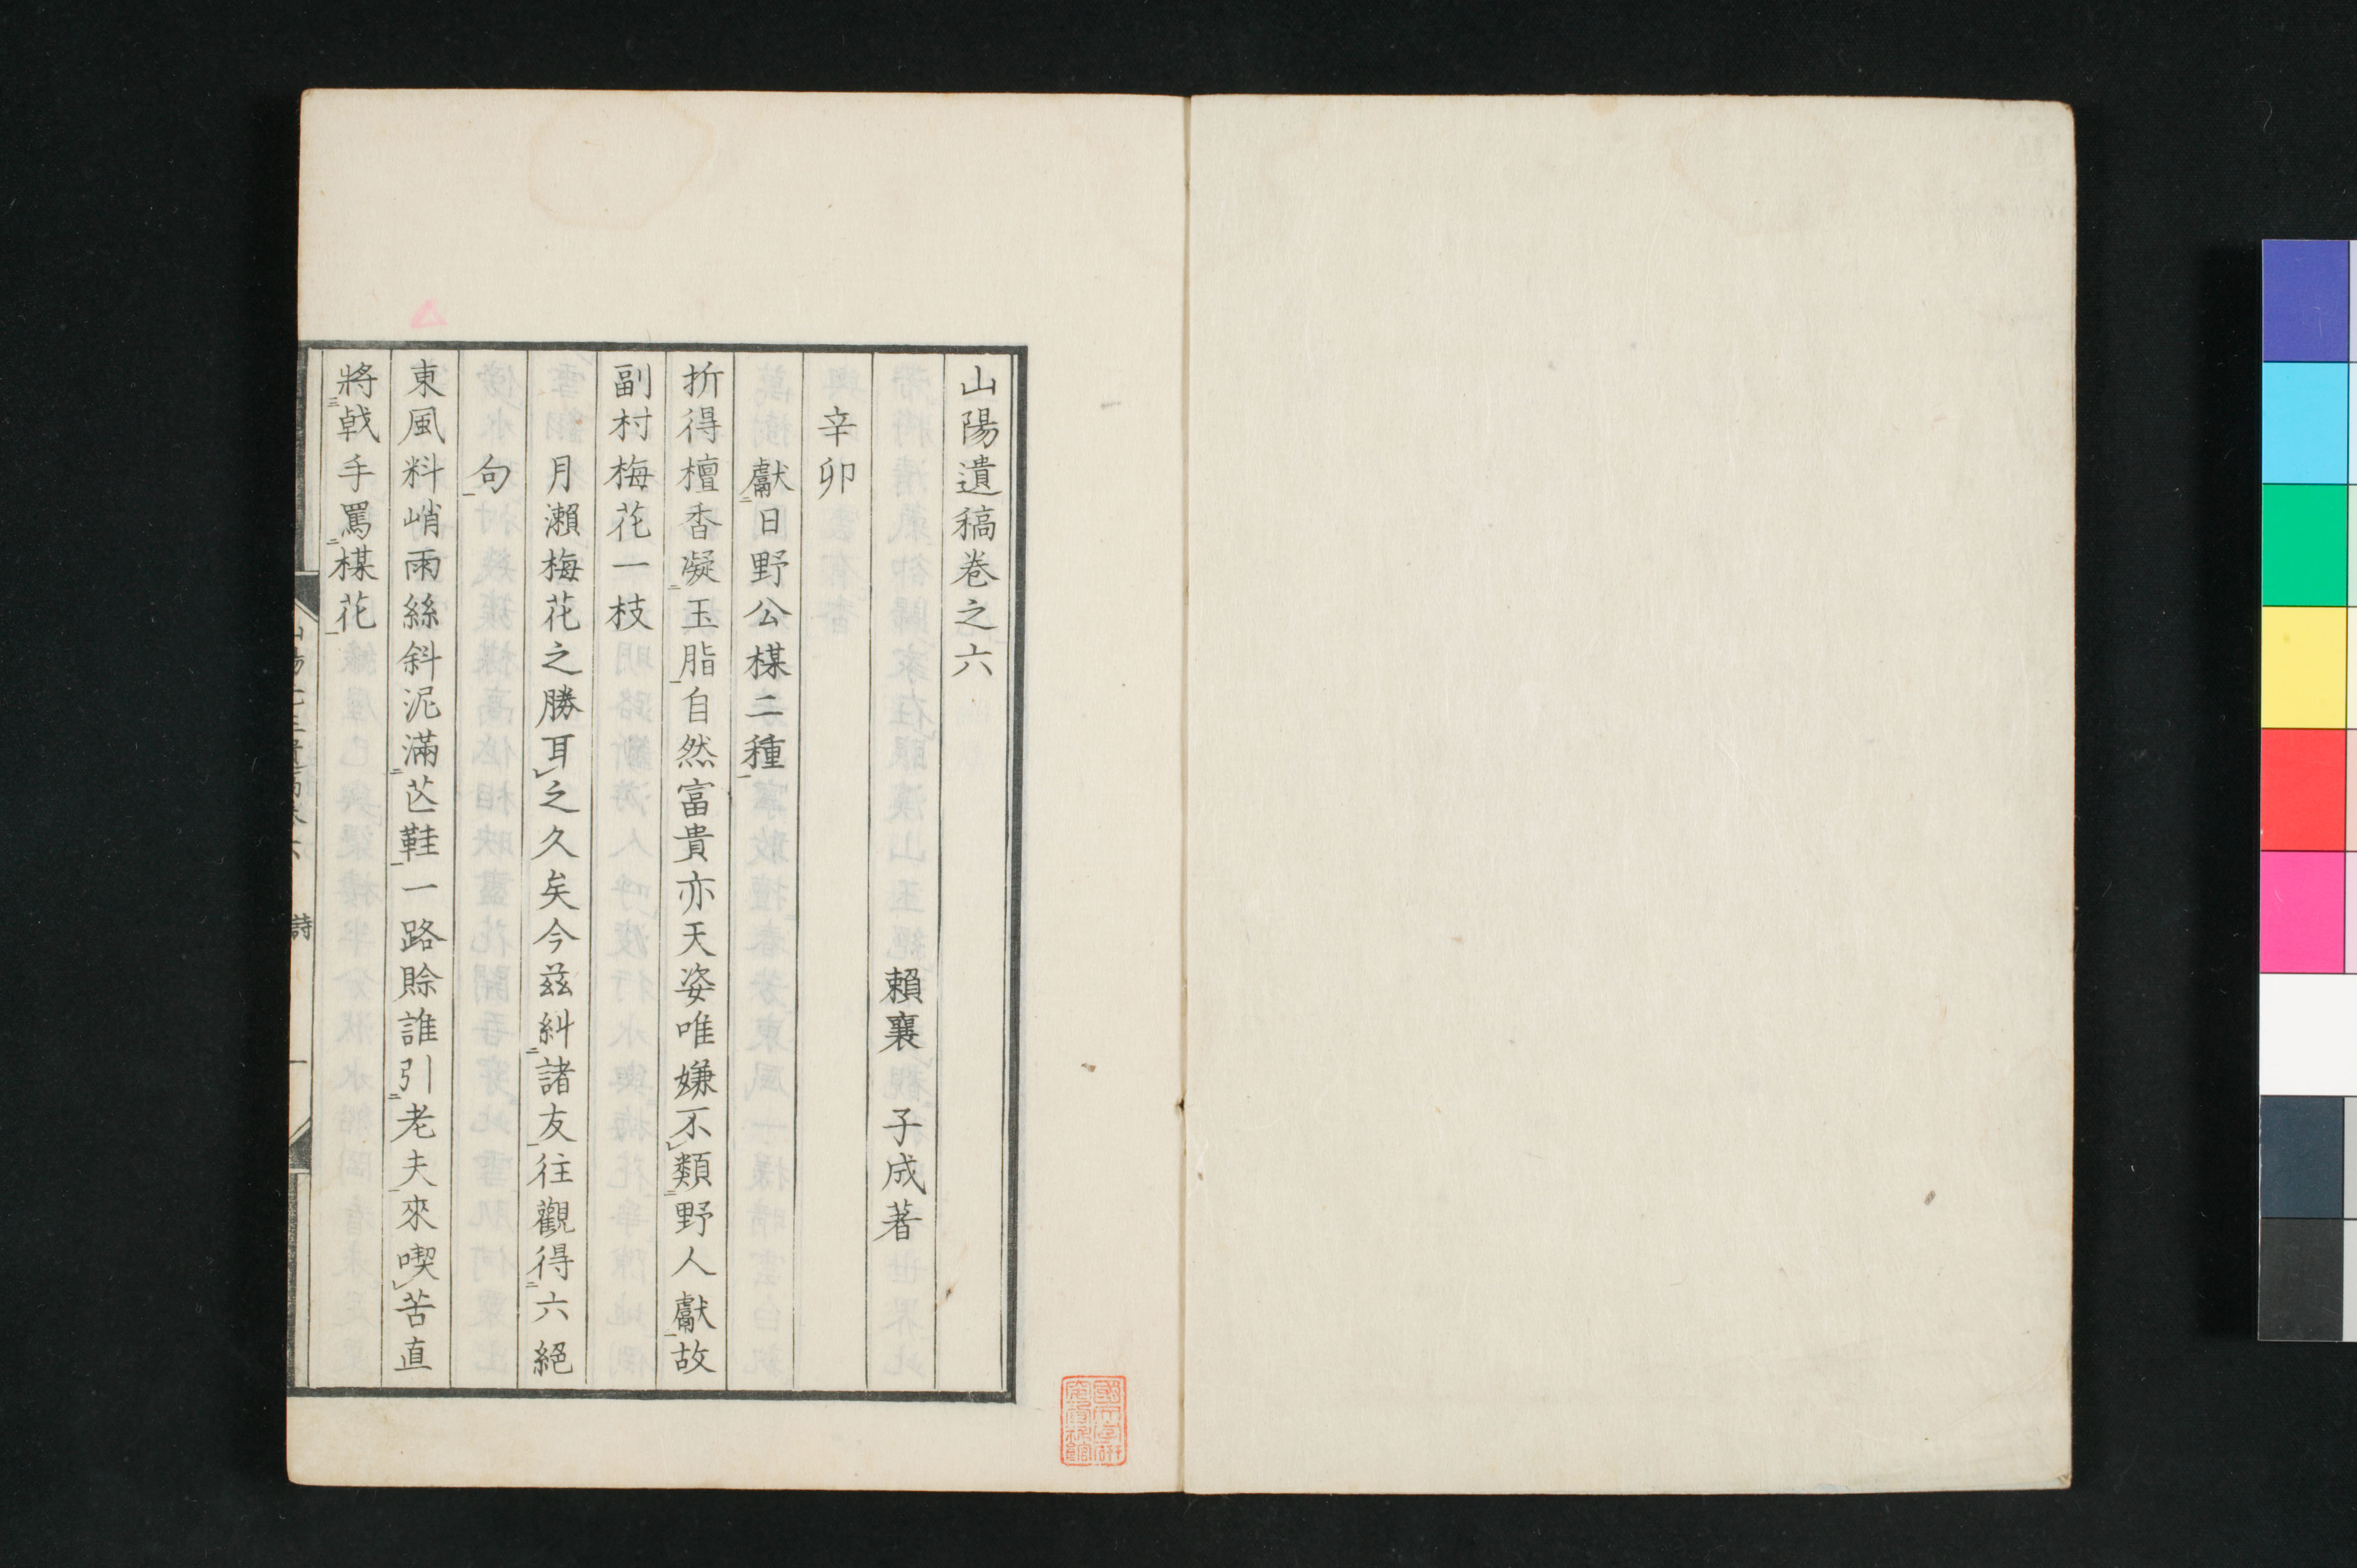 山陽遺稿卷之六
賴襄 子成著
辛卯
獻日野公楳二種
折得檀香凝玉脂自然富貴亦天姿唯嫌不類野人獻故
副村梅花一枝
月瀨梅花之勝耳之久矣今茲糾諸友往觀得六絕
句
東風料峭雨絲斜泥滿芒鞋一路賒誰引老夫來喫苦直
將戟手罵楳花
詩
一